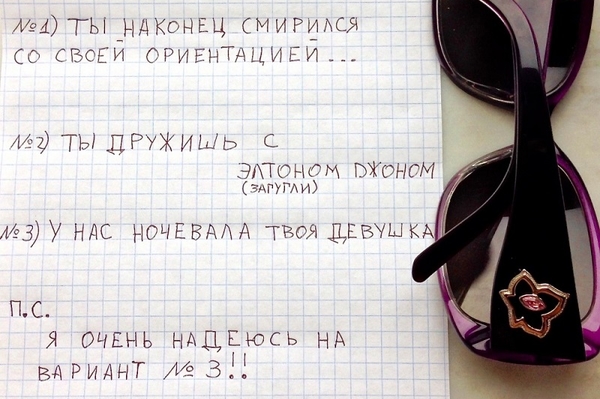 №1) ТЫ НАКОНЕЦ СМИРИЛСЯ
СО СВОЕЙ ОРИЕНТАЦИЕЙ...
№2) ТЫ ДРУЖИШЬ С
ЭЛТОНОМ ДЖОНОМ
(ЗАГУГЛИ)
№3) У НАС НОЧЕВАЛА ТВОЯ ДЕВУШКА
П.С.
Я ОЧЕНЬ НАДЕЮСЬ НА
ВАРИАНТ № 3!!